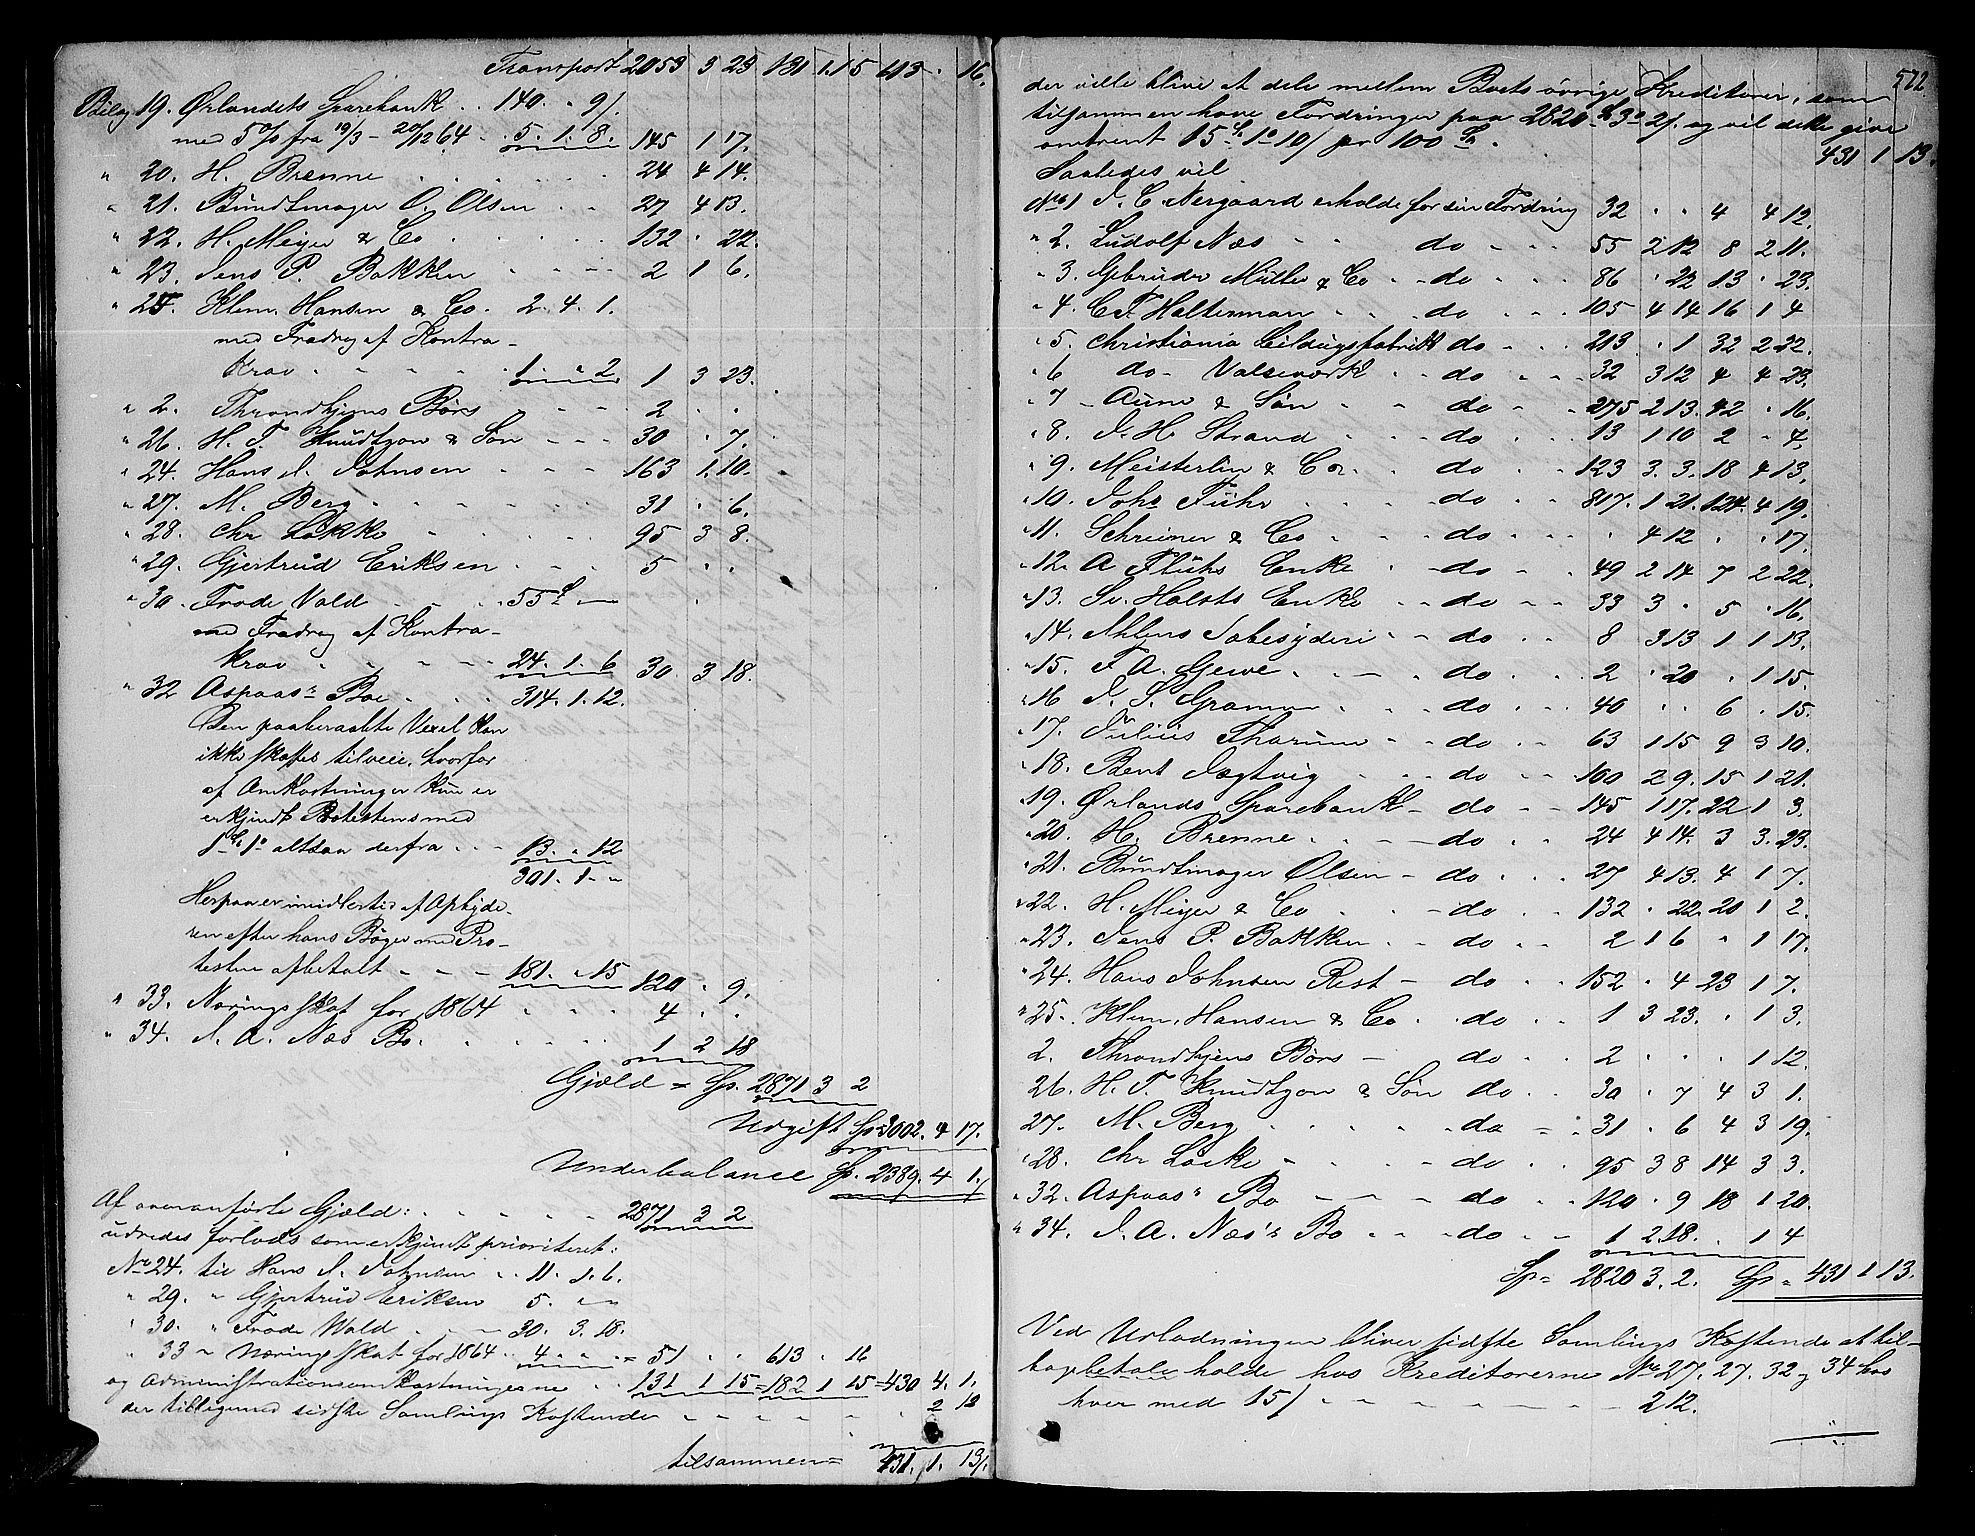 Transport 2053 3 23 131 1 15 613 . 16.
Bilag 19. Ørlandets Sparebank . . 140. . 9/.
med 5 % fra 19/3 – 20/12 64 . 5. 1. 8. 145 1 17.
" 20. H. Brenne . . . . . . 24 4 14.
" 21. Bundtmager O. Olsen . . 27 4 13.
" 22. H. Meyer & Co . . . . . 132 . 22.
" 23. Jens P. Bakken . . . . 2 1 6.
" 25. Klem. Hansen & Co. 2. 4. 1.
med Fradrag af Kontra-
krav . . . . . 1 " 2 1 3 23.
" 2. Throndhjems Børs . . . 2 . .
" 26. H. T. Knudtzon & Søn . . . 30 . 7.
" 24. Hans J. Johnsen . . . . 163 1. 10.
" 27. M. Berg . . . . . . 31 . 6.
" 28. Chr Løkke . . . . . 95 3 8.
" 29. Gjertrud Eriksen . . . 5 . .
" 30. Frode Vald . . . 55 –
med Fradrag af Kontra-
krav . . . . . 24. 1. 6 30. 3 18.
" 32 Aspaas's Bo . . . . 314. 1. 12.
Den paaberaabte Vexel kan
ikke skaffes tilveie, hvorfor
af Omkostninger kun er
erkjendt Protestens med
1 Sp 1 altsaa derfra . . . 13. . 12
301. 1. "
Herpaa er imidlertid af Aphyde-
ren efter hans Bøger med Pro-
testen afbetalt . . . 181. . 15 120 . 9.
" 33. Næringsskat for 1864 . . . 4 . .
" 34. J. A. Næs Bo. . . . . . 1 2 18
Gjæld = Sp. 2871 3 2
Udgift Sp 3002. 4 17.
Underbalance Sp. 2389. 4 1.
Af ovenanførte Gjæld: . . . . . 2871 3 2
udredes forlods som erkjendt prioriteret:
No 24. til Hans J. Johnsen . . 11. 1. 6.
" 29. " Gjertrud Eriksen 5. " –
" 30. " Frode Wald . . . . 30. 3. 18.
" 33 " Næringsskat for 1864 . . 4 . . = 51 . . 613 . 16
og Administrationsomkostningerne . . 131 1 15 = 182 1 15 = 430 4. 1.
der tilligemed sidste Samlings Kostende . . . . . 2 12
tilsammen = 431. 1. 13/.
572
der ville blive at dele mellem Boets øvrige Kreditorer, som
tilsammen have Fordringer paa 2820 Sp 3 2/. og vil dette give
omtrent 15 Sp 1 10/ pr 100 Sp. 431 1 13.
Saaledes vil
No 1 J. C. Nergaard erholde for sin Fordring 32 . . 4 4 12.
" 2. Ludolf Næs . . . do . . . 55 2 12 8 2 11.
" 3. Gebrüder Müller & Co . . do . . . 86 . 22 13 . 23.
" 4. C. F. Halterman . . . do . . . 105 4 14 16 1 4
" 5. Christiania Seildugsfabrikk do . . . 213 . 1 32 2 22.
" 6 do – Valseværk . . do . . . 32 3 12 4 4 23.
" 7 – Aune & Søn . . . do . . 275 2 13. 42 . 16.
" 8. J. H. Strand . . . do . . . 13 1 10 2 . 4.
" 9. Meisterlin & Co. . . . do . . . 123 3. 3. 18 4 13.
" 10. Johs Führ . . . do . . . 817. 1 21. 124. 4 19.
" 11. Schreiner & Co . . . do . . . . 4 12 . . 17.
" 12. A Flühs Enke . . do . . 49 2 14 7 2 22.
" 13. Sv. Holsts Enke . . do . . . 33 3 . 5 . 16.
" 14. Ihlens Sæbesyderi . . do . . . 8 3 13 1 1 13.
" 15. F. A. Gewe . . . . do . . . 2 . 20 . 1 15.
" 16 J. S. Gramm . . . do . . . 40 . . 6 . 15.
" 17. Julius Tharum . . do . . . 63 1 15 9 3 10.
" 18. Bent Jægtvig . . . do . . . 100 2 9. 15 1 21.
" 19. Ørlands Sparebank – do . . 145 1 17. 22 1 3.
" 20. H. Brenne . . . . do . . . 24 4 14. 3 3. 23.
" 21. Bundtmager Olsen – do . . . 27 4 13. 4 1 7.
" 22. H. Meyer & Co . . . do . . . 132 . 22. 20 1 2.
" 23. Jens P. Bakken . . do . . . 2 1 6 . 1 17.
" 24. Hans Johnsen Rest – do . . . 152 . 4 23 1 7.
" 25. Klem. Hansen & Co . . do . . 1 3 23. . 1 3.
2. Throndhjems Børs – do . . 2 . . . 1 12.
26. H. T. Knudtzon & Søn do . . 30 . 7 4 3 1.
27. M. Berg . . . . . do . . 31 . 6 4 3 19.
" 28. Chr Løcke . . . do . . . 95 3 8 14 3 3.
" 32. Aspaas's Bo . . . do . . . 120 . 9 18 1 20.
" 34. J. A. Næs's Bo . . . do . . 1 2 18. . 1 4
Sp = 2820 3. 2. Sp = 431 1 13.
Ved Udlodningen bliver sidste Samlings Kostende at til-
bagebetale holde hos Kreditorerne No 27. 27. 32 og 34 hos
hver med 15/ . . . . . . 2 12.